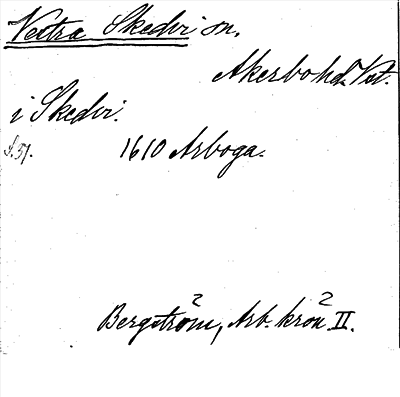 Västra Skedvi sn.
Akerbo hd. Vst.
i Skedvi.
S.51. 1610 Arboga.
Bergström, Arb. krön II.